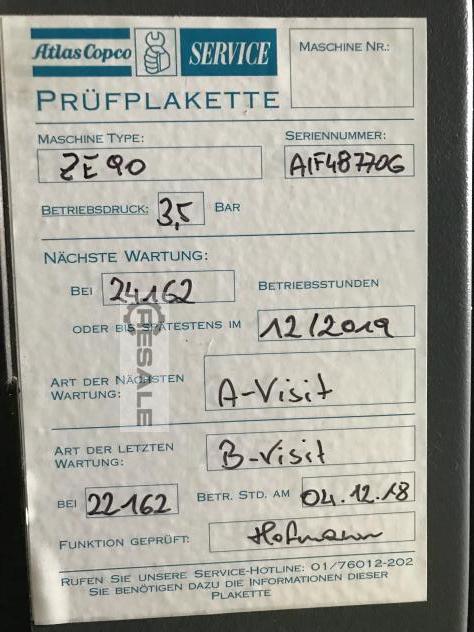 Atlas Copco SERVICE
MASCHINE NR.:
PRÜFPLAKETTE
MASCHINE TYPE: SERIENNUMMER:
ZE 90 AIF487706
BETRIEBSDRUCK: 3,5 BAR
NÄCHSTE WARTUNG:
BEI 24162 BETRIEBSSTUNDEN
ODER BIS SPÄTESTENS IM 12/2019
ART DER NÄCHSTEN
WARTUNG: A-Visit
ART DER LETZTEN
WARTUNG: B-Visit
BEI 22162 BETR. STD. AM 04.12.18
FUNKTION GEPRÜFT: Hofmann
RUFEN SIE UNSERE SERVICE-HOTLINE: 01/76012-202
SIE BENÖTIGEN DAZU DIE INFORMATIONEN DIESER
PLAKETTE
RESALE